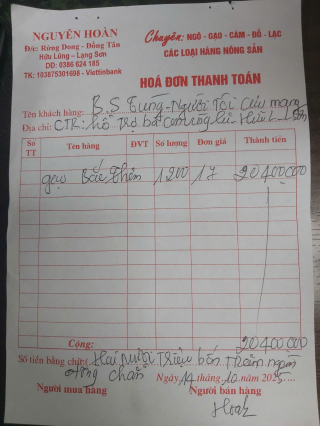 NGUYÊN HOÀN
Đ/c: Rừng Dong - Đồng Tân
Hữu Lũng - Lạng Sơn
DD: 0386 624 185
TK: 103875301698 - Viettinbank
Chuyên: NGÔ - GẠO - CÁM - ĐỖ - LẠC
CÁC LOẠI HÀNG NÔNG SẢN
HOÁ ĐƠN THANH TOÁN
Tên khách hàng: B.S Tùng - Người Tôi Cưu mang
Địa chỉ: CTR: hỗ Trợ bà con vùng lũ Hữu L
Số TT Tên hàng ĐVT Số lượng Đơn giá Thành tiền
gạo Bắc Thơm 1200 17 20400000
Cộng: 20400000
Số tiền bằng chữ: Hai mươi Triệu bốn Trăm ngàn
đồng chẵn
Ngày 14 tháng 10 năm 2025
Người mua hàng Người bán hàng